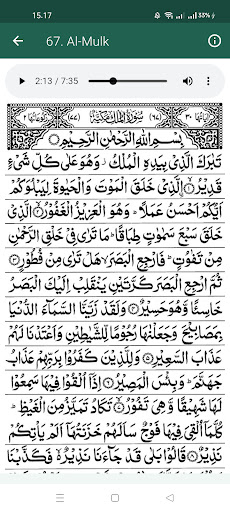 15.17
33%
67. Al-Mulk
2:13 / 7:35
سُوْرَةُ الْمُلْكِ مَكِّيَّةٌ
بِسْمِ اللّٰهِ الرَّحْمٰنِ الرَّحِيْمِ
تَبٰرَكَ الَّذِيْ بِيَدِهِ الْمُلْكُ وَهُوَ عَلٰى كُلِّ شَيْءٍ
قَدِيْرُۨ الَّذِيْ خَلَقَ الْمَوْتَ وَالْحَيٰوةَ لِيَبْلُوَكُمْ
اَيُّكُمْ اَحْسَنُ عَمَلًا وَهُوَ الْعَزِيْزُ الْغَفُوْرُ الَّذِيْ
خَلَقَ سَبْعَ سَمٰوٰتٍ طِبَاقًا مَا تَرٰى فِيْ خَلْقِ الرَّحْمٰنِ
مِنْ تَفٰوُتٍ فَارْجِعِ الْبَصَرَ هَلْ تَرٰى مِنْ فُطُوْرٍ
ثُمَّ ارْجِعِ الْبَصَرَ كَرَّتَيْنِ يَنْقَلِبْ اِلَيْكَ الْبَصَرُ
خَاسِئًا وَّهُوَ حَسِيْرٌ وَلَقَدْ زَيَّنَّا السَّمَآءَ الدُّنْيَا
بِمَصَابِيْحَ وَجَعَلْنٰهَا رُجُوْمًا لِّلشَّيٰطِيْنِ وَاَعْتَدْنَا لَهُمْ
عَذَابَ السَّعِيْرِ وَلِلَّذِيْنَ كَفَرُوْا بِرَبِّهِمْ عَذَابُ
جَهَنَّمَ وَبِئْسَ الْمَصِيْرُ اِذَآ اُلْقُوْا فِيْهَا سَمِعُوْا
لَهَا شَهِيْقًا وَّهِيَ تَفُوْرُ تَكَادُ تَمَيَّزُ مِنَ الْغَيْظِ
كُلَّمَآ اُلْقِيَ فِيْهَا فَوْجٌ سَاَلَهُمْ خَزَنَتُهَآ اَلَمْ يَاْتِكُمْ
نَذِيْرٌ قَالُوْا بَلٰى قَدْ جَآءَنَا نَذِيْرٌ فَكَذَّبْنَا